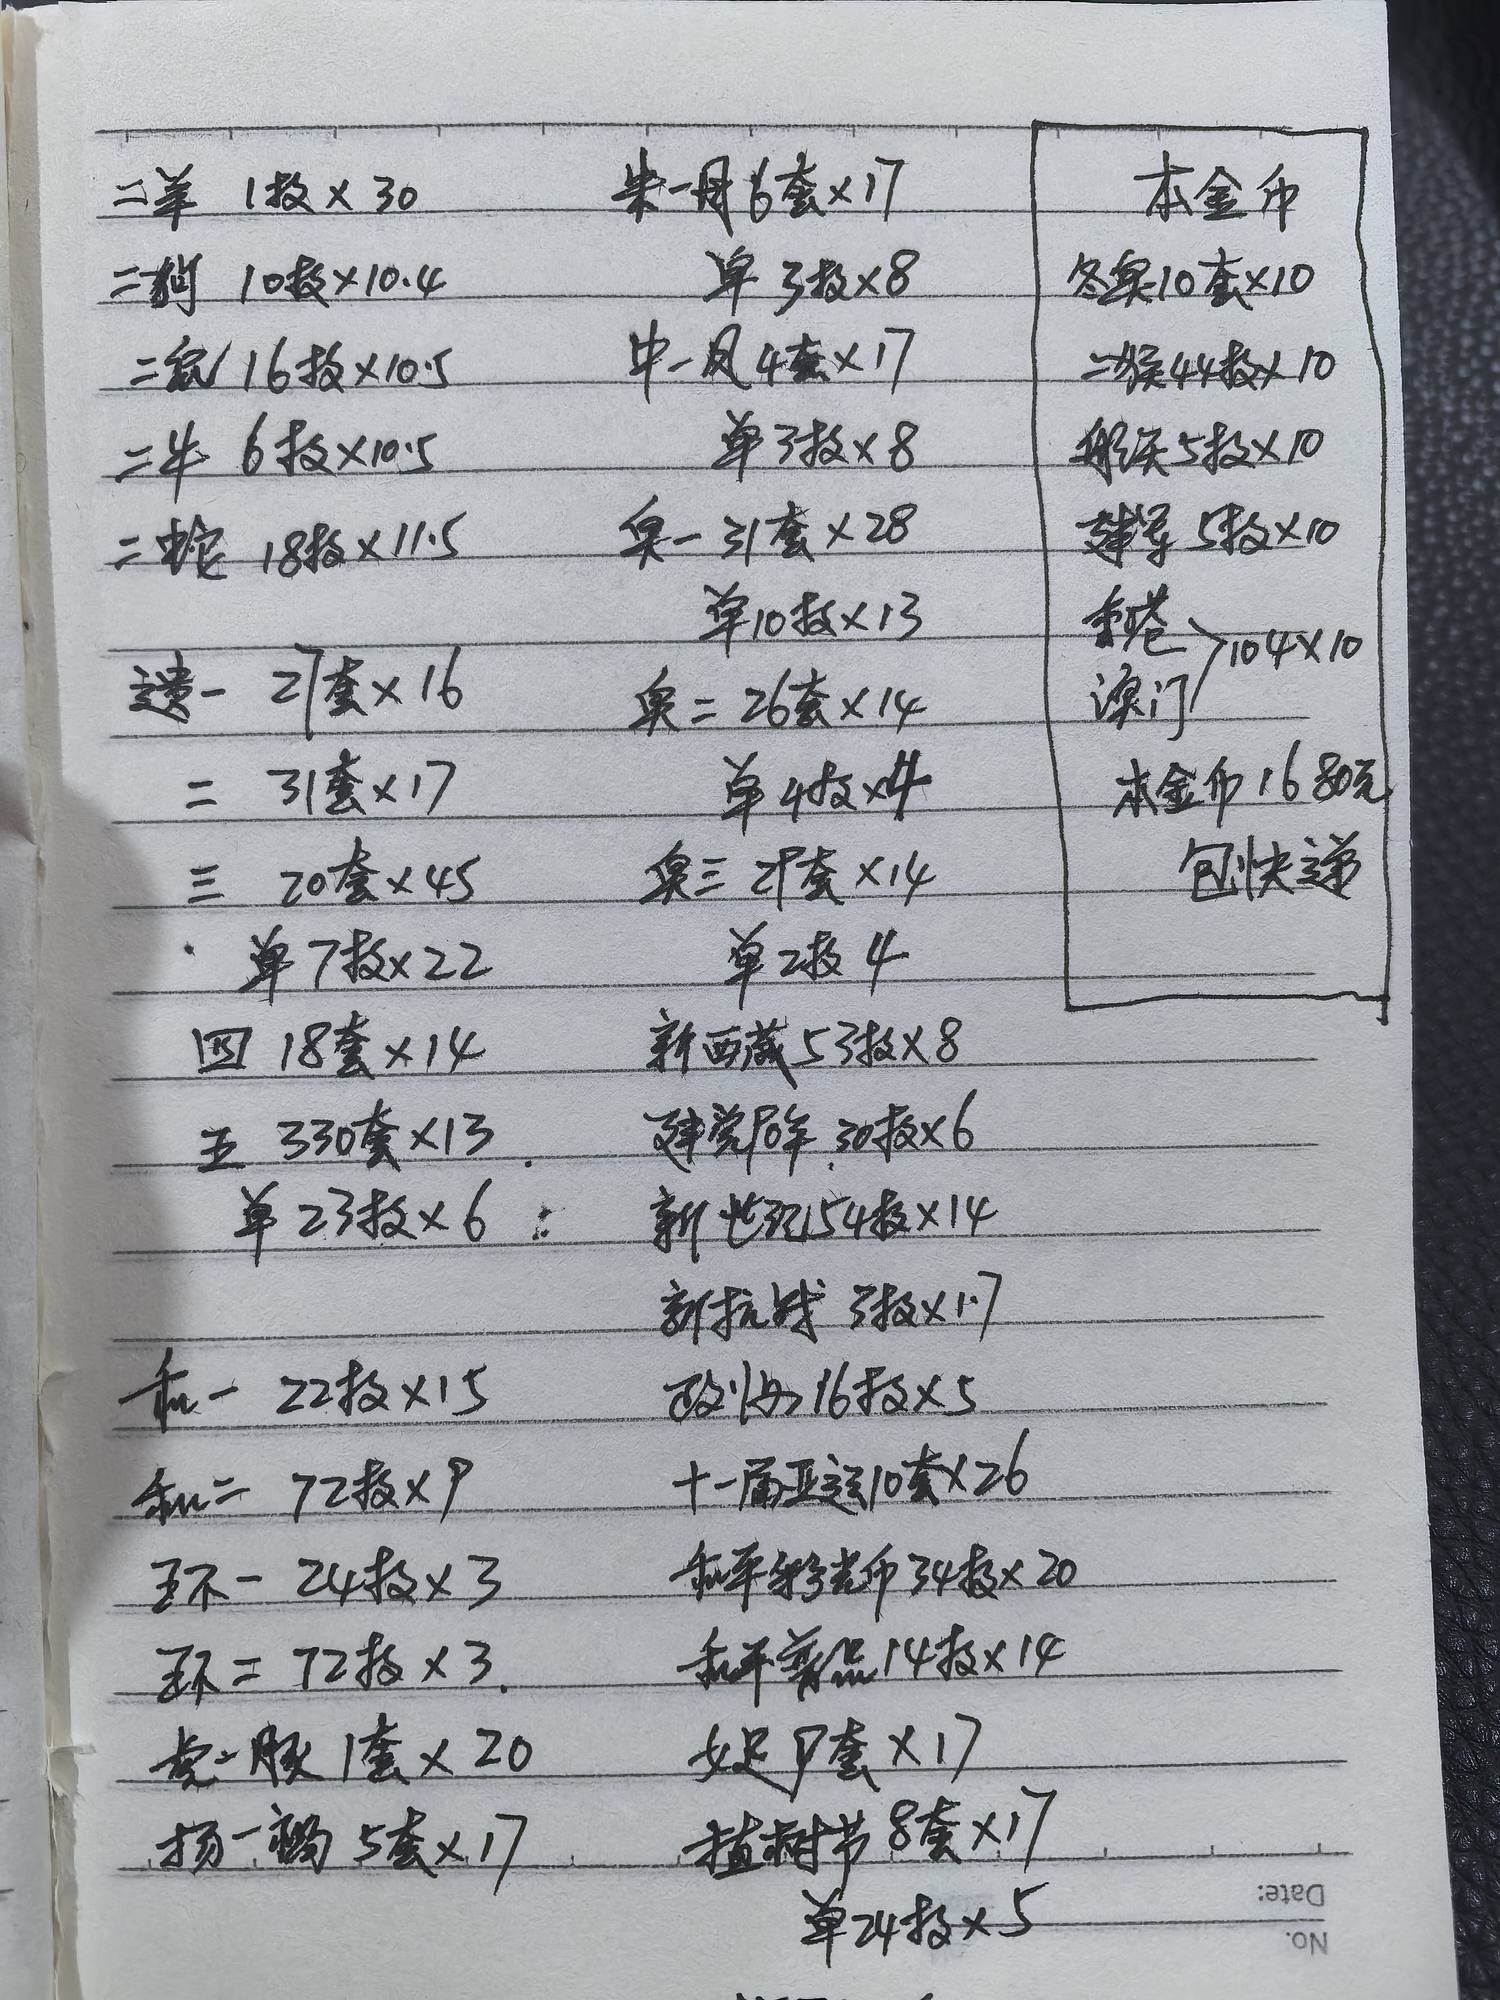 二羊 1枚×30
二狗 10枚×10.4
二鼠 16枚×10.5
二牛 6枚×10.5
二蛇 18枚×11.5
遗一 27套×16
二 31套×17
三 20套×45
单7枚×22
四 18套×14
五 330套×13
单23枚×6
和一 22枚×15
和二 72枚×9
环一 24枚×3
环二 72枚×3
一豚 1套×20
扬一褐 5套×17
朱一丹 6套×17
单3枚×8
中一凤 4套×17
单3枚×8
奥一 31套×28
单10枚×13
奥二 26套×14
单4枚×4
奥三 套×14
单2枚 4
新西藏53枚×8
建党 30枚×6
新世纪54枚×14
新抗战 3枚×1.7
政协16枚×5
十一届亚运10套×26
和平 币34枚×20
和平普品14枚×14
女足9套×17
植树节8套×17
单24枚×5
本金币
冬奥10套×10
二猴44枚×10
航天5枚×10
建军5枚×10
香港
澳门 104×10
本金币1680元
包快递
Date:
No.